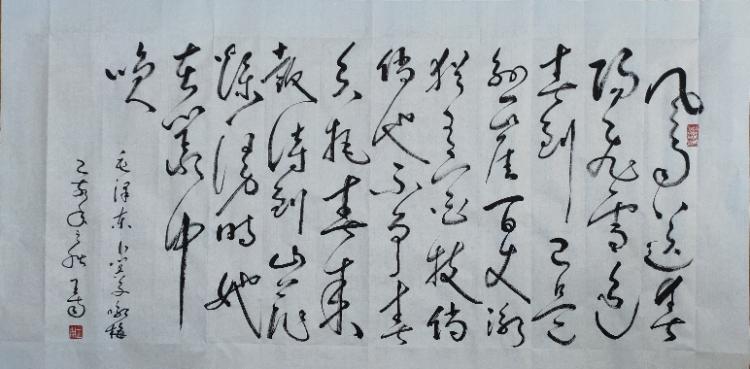 风雨送春
归飞雪迎
春到已是
悬崖百丈冰
犹有花枝俏
俏也不争春
只把春来
报待到山花
烂漫时她
在丛中
笑
毛泽东卜算子咏梅